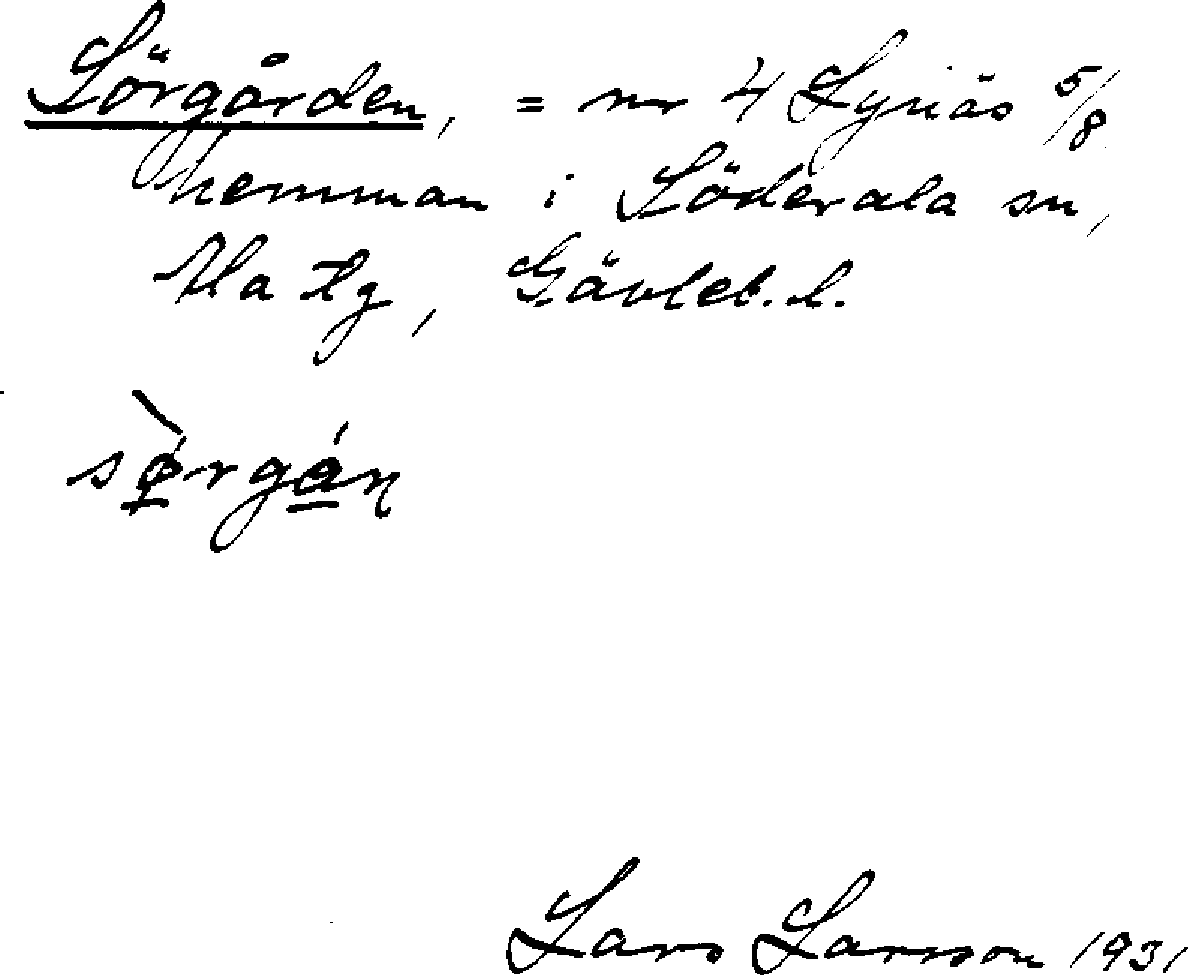 Sörgården, = nr 4 Lynäs 5/8
hemman i Söderala sn,
Ala tg, Gävleb. l.
Lars Larsson 1931